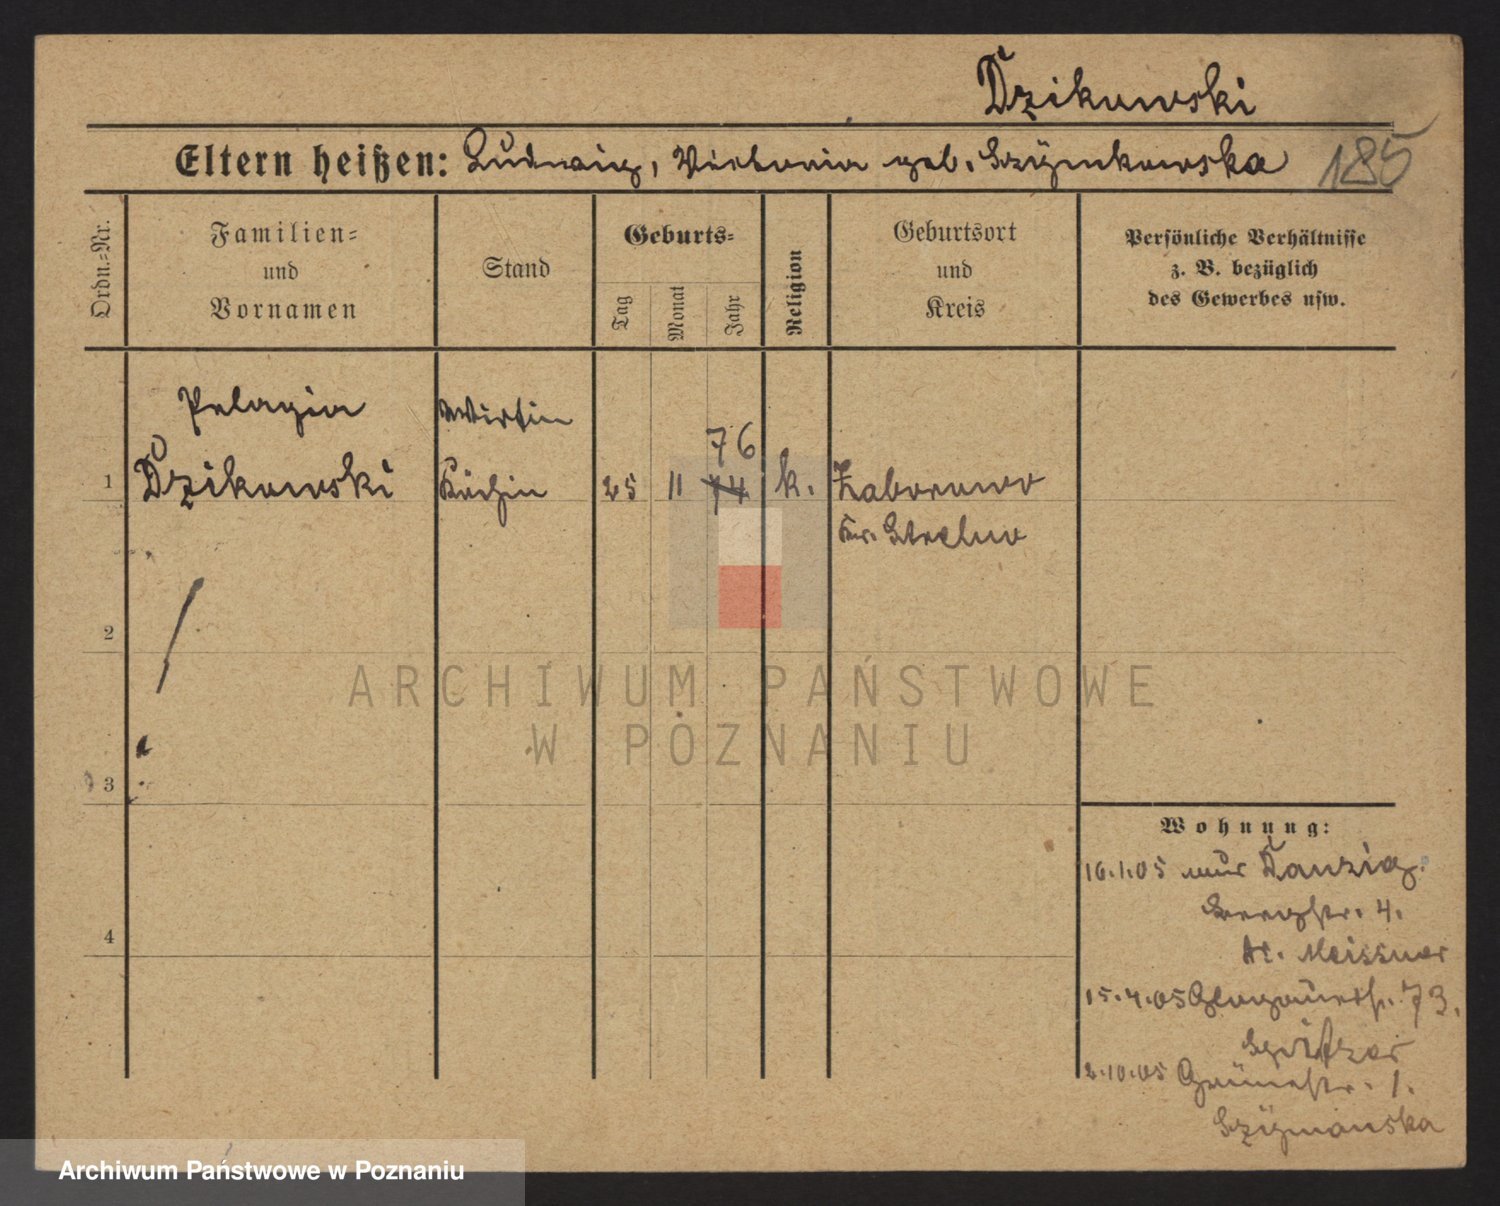 Dzikowski
Eltern heißen: Ludwig, Victoria geb. Szymkowska 185
Ordn.-Nr.
Familien-
und
Vornamen
Stand
Geburts-
Tag
Monat
Jahr
Religion
Geburtsort
und
Kreis
Persönliche Verhältnisse
z. B. bezüglich
des Gewerbes usw.
Pelagia Wirtin
76
1 Dzikowski Köchin 25 11 74 k. Zaborowo
Kr. Strelno
2
3
4
Wohnung:
16.1.05 Danzig.
4.
Dr. Meissner
15.4.05 Glogauerstr. 73.
Spitzer
2.10.05 Grünestr. 1.
Szymanska
ARCHIWUM PAŃSTWOWE
W POZNANIU
Archiwum Państwowe w Poznaniu